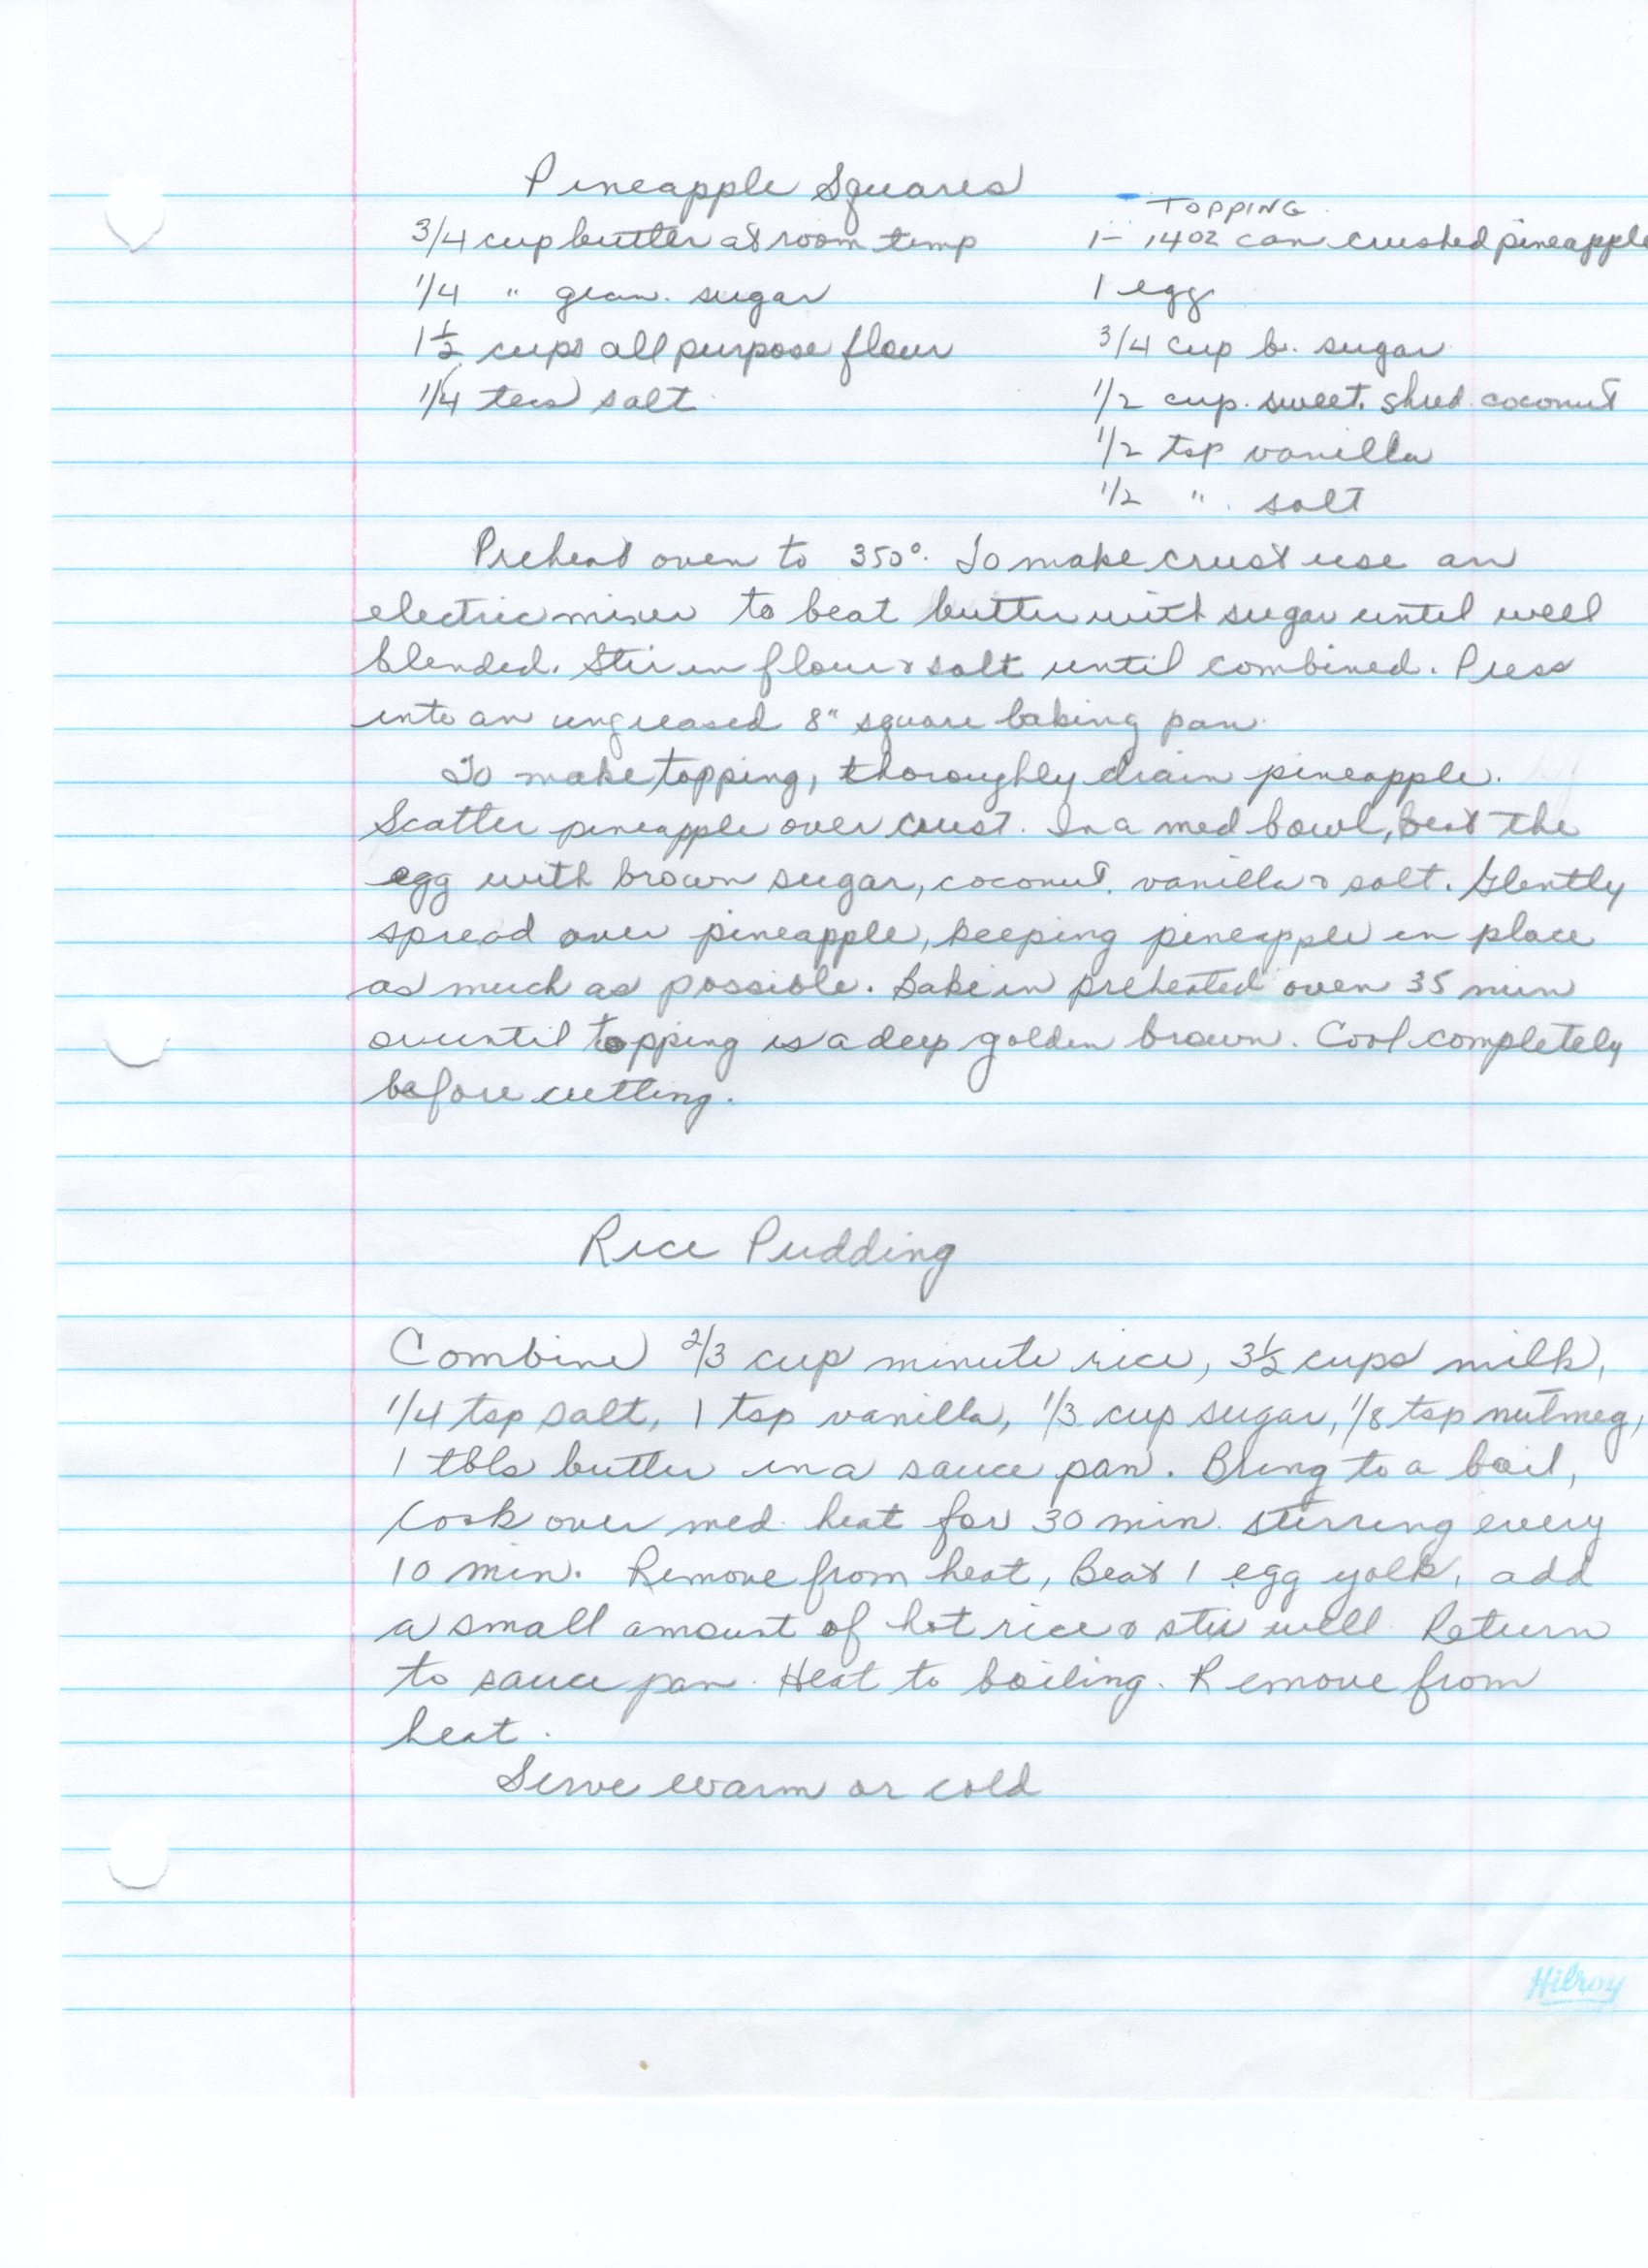 Pineapple Squares
TOPPING
3/4 cup butter at room temp
1/4 " gran. sugar
1 1/2 cups all purpose flour
1/4 teas salt
1- 14oz can crushed pineapple
1 egg
3/4 cup b. sugar
1/2 cup. sweet. shred. coconut
1/2 tsp vanilla
1/2 " salt
Preheat oven to 350°. To make crust use an
electric mixer to beat butter with sugar until well
blended. Stir in flour & salt until combined. Press
into an ungreased 8" square baking pan.
To make topping, thoroughly drain pineapple.
Scatter pineapple over crust. In a med bowl, beat the
egg with brown sugar, coconut, vanilla & salt. Gently
spread over pineapple, keeping pineapple in place
as much as possible. Bake in preheated oven 35 min
or until topping is a deep golden brown. Cool completely
before cutting.
Rice Pudding
Combine 2/3 cup minute rice, 3 1/2 cups milk,
1/4 tsp salt, 1 tsp vanilla, 1/3 cup sugar, 1/8 tsp nutmeg,
1 tbls butter in a sauce pan. Bring to a boil,
Cook over med. heat for 30 min. stirring every
10 min. Remove from heat, Beat 1 egg yolk, add
a small amount of hot rice & stir well. Return
to sauce pan. Heat to boiling. Remove from
heat.
Serve warm or cold
Hilroy